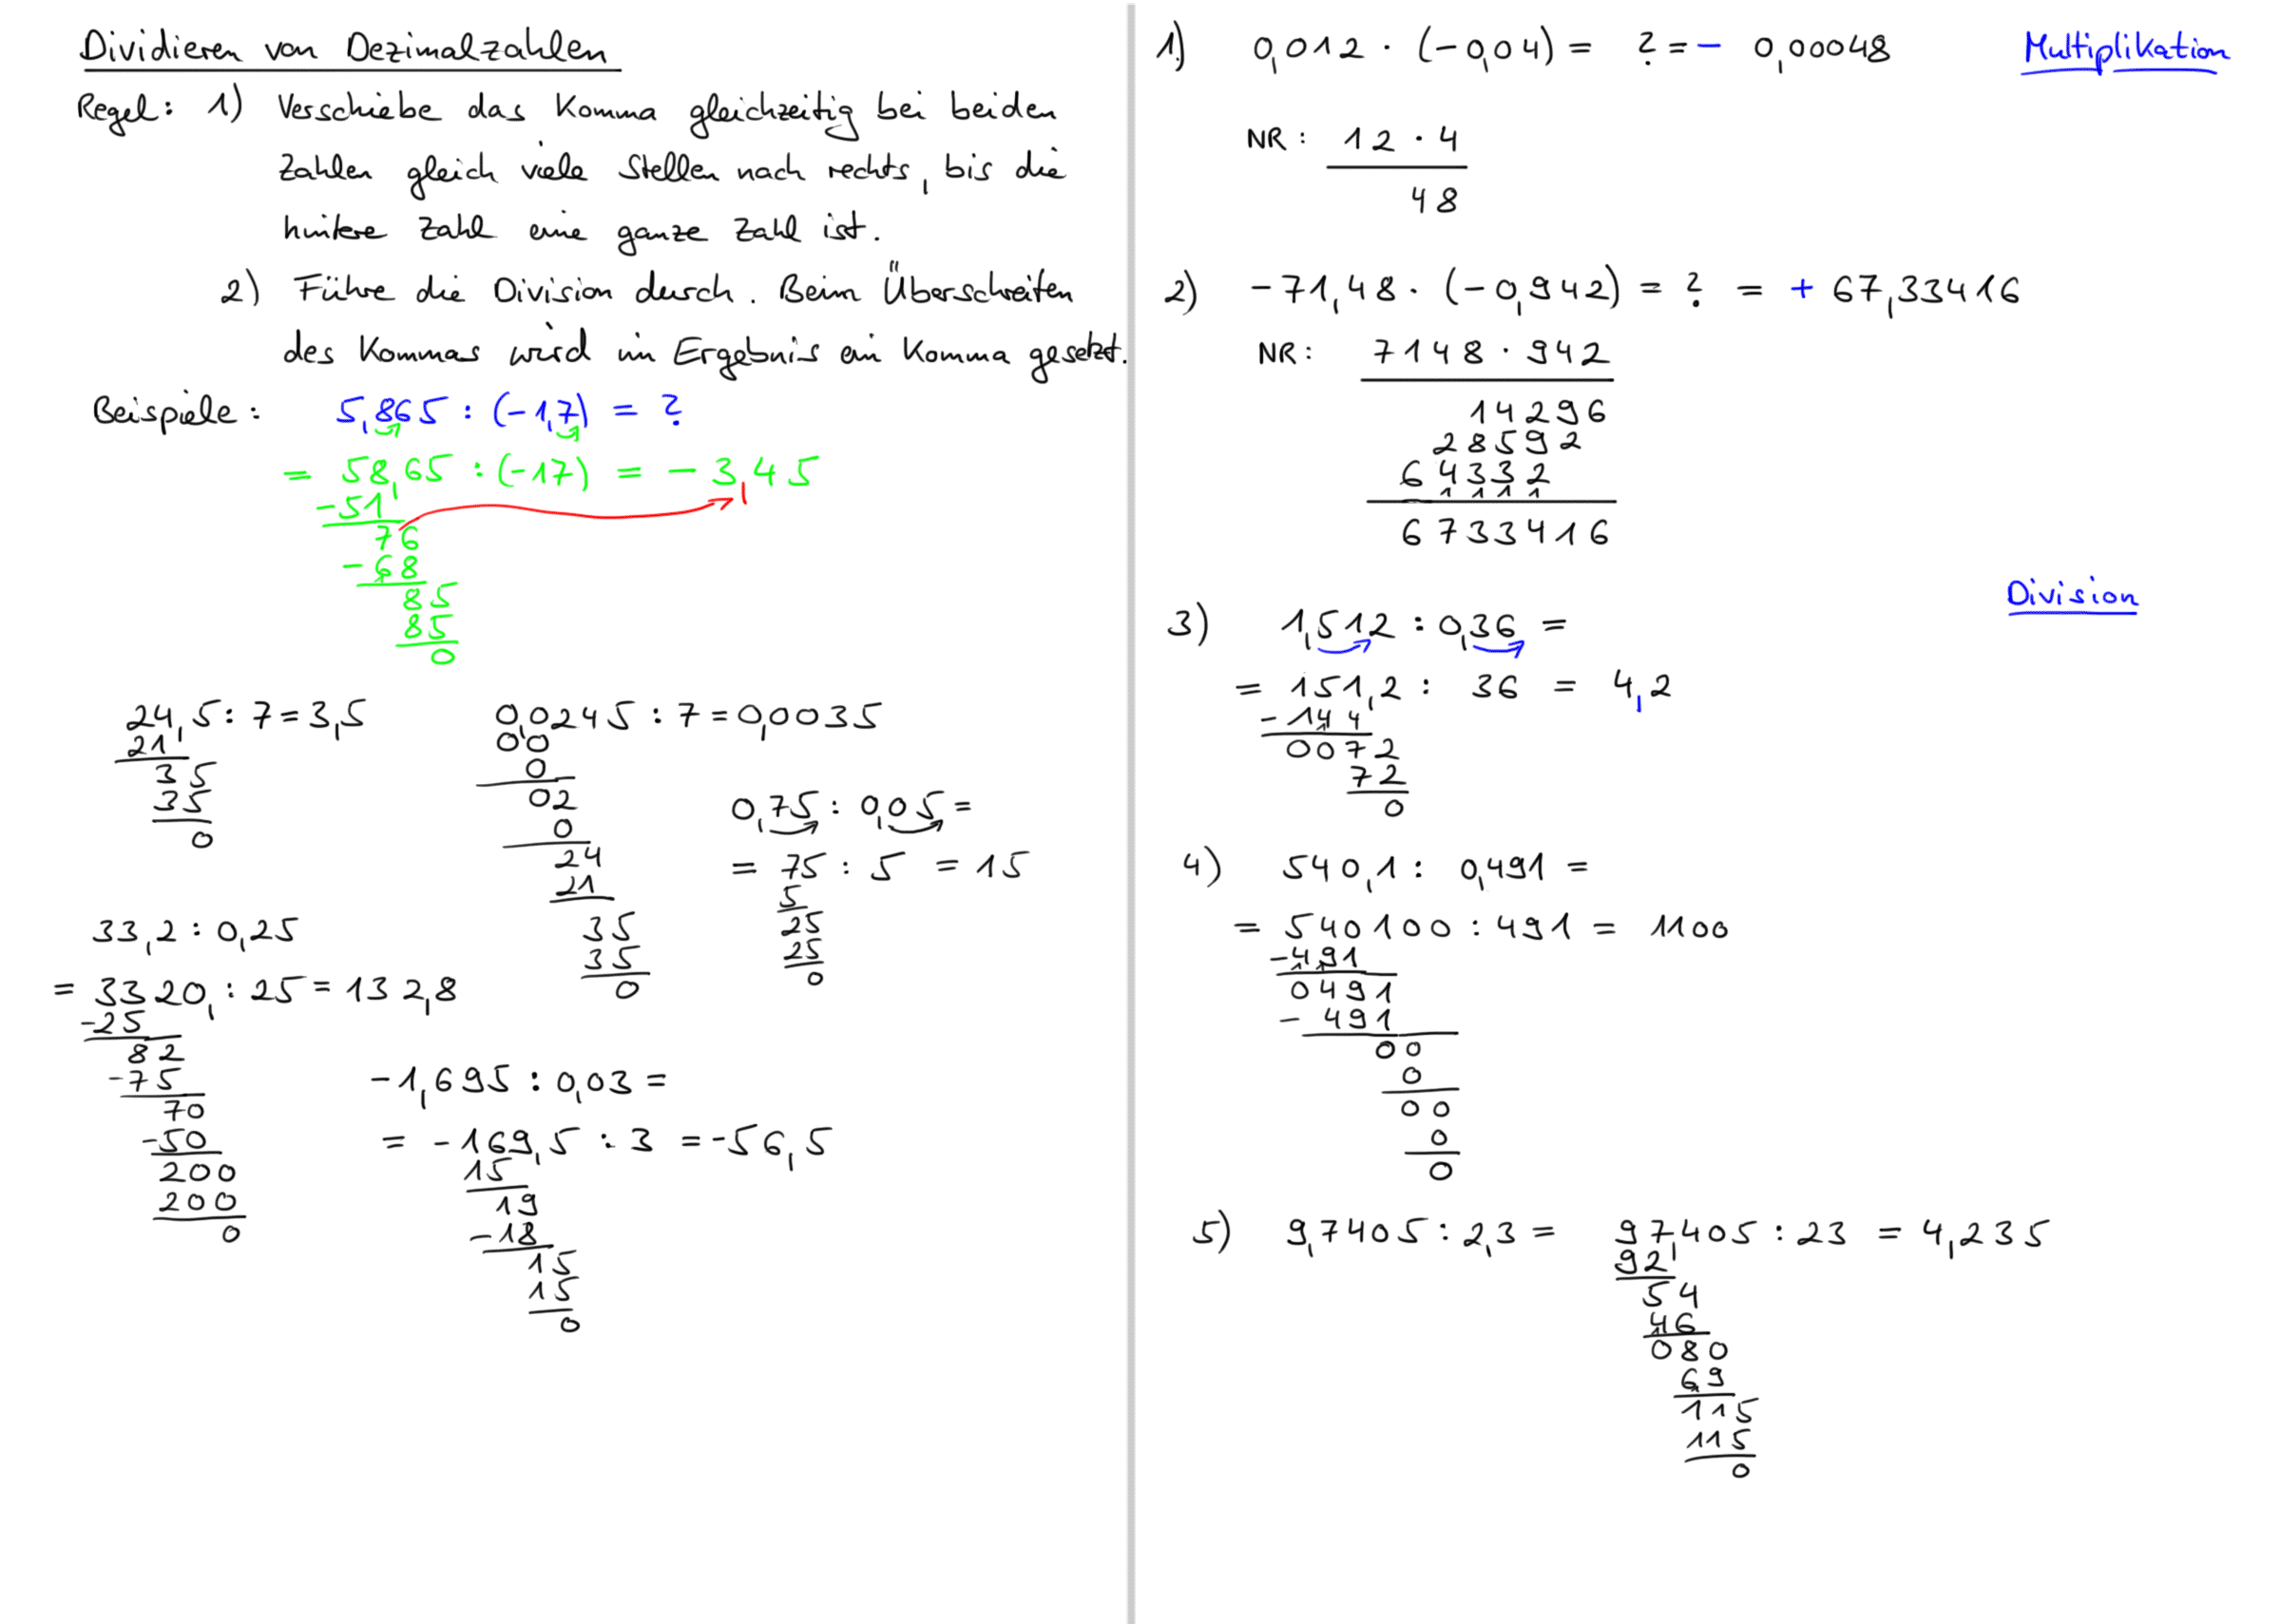 Dividieren von Dezimalzahlen
Regel: 1) Verschiebe das Komma gleichzeitig bei beiden
Zahlen gleich viele Stellen nach rechts, bis die
hintere Zahl eine ganze Zahl ist.
2) Führe die Division durch. Beim Überschreiten
des Kommas wird im Ergebnis ein Komma gesetzt.
Beispiele: 5,865 : (-1,7) = ?
= 58,65 : (-17) = - 3,45
-51
76
-68
85
85
0
24,5 : 7 = 3,5
21
35
35
0
0,0245 : 7 = 0,0035
00
0
02
0
24
21
35
35
0
0,75 : 0,05 =
= 75 : 5 = 15
5
25
25
0
33,2 : 0,25
= 3320, : 25 = 132,8
-25
82
-75
70
-50
200
200
0
-1,695 : 0,03 =
= -169,5 : 3 = -56,5
15
19
-18
15
15
0
1) 0,012 · (-0,04) = ? = - 0,00048 Multiplikation
NR: 12 · 4
48
2) -71,48 · (-0,942) = ? = + 67,33416
NR: 7148 · 942
14296
28592
64332
1 1 1 1
6733416
Division
3) 1,512 : 0,36 =
= 151,2 : 36 = 4,2
-144
1
0072
72
0
4) 540,1 : 0,491 =
= 540100 : 491 = 1100
-491
1 1
0491
- 491
00
0
00
0
0
5) 9,7405 : 2,3 = 97,405 : 23 = 4,235
92
54
46
1
080
69
1
115
115
0